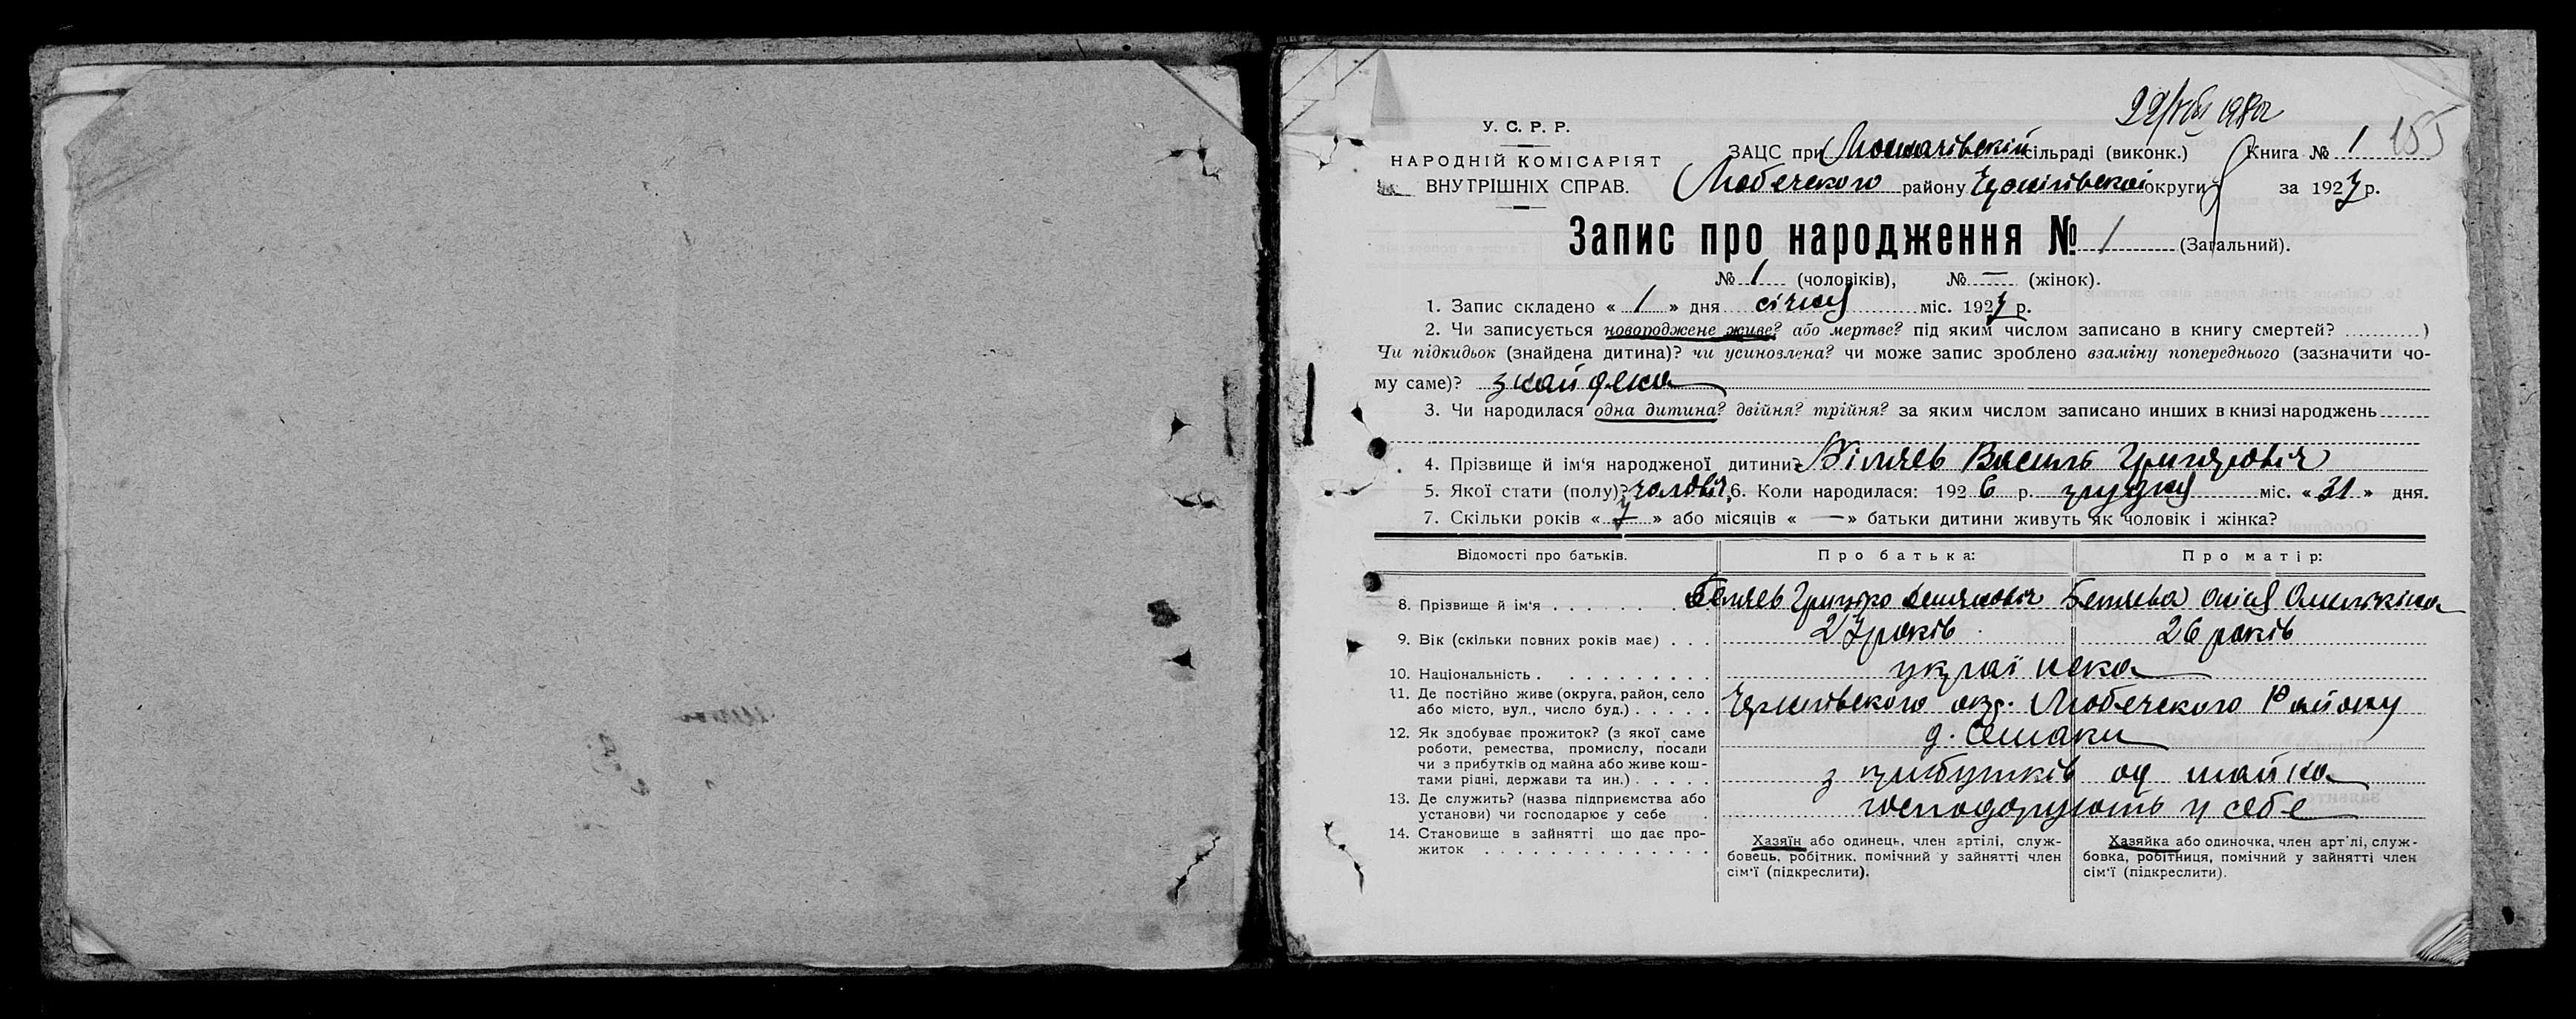 У. С. Р. Р.
НАРОДНІЙ КОМІСАРІЯТ
ВНУТРІШНІХ СПРАВ.
ЗАЦС при сільраді (виконк.) Книга № 1 155
Любечского району Чернігівскоі округи за 1927 р.
Запис про народження № 1 (Загальний).
№ 1 (чоловіків), № — (жінок).
1. Запис складено « 1 » дня січня міс. 1927 р.
2. Чи записується новороджене живе? або мертве? під яким числом записано в книгу смертей? )
Чи підкидьок (знайдена дитина)? чи усиновлена? чи може запис зроблено взаміну попереднього (зазначити чо-
му саме)? знайдена
3. Чи народилася одна дитина? двійня? трійня? за яким числом записано инших в книзі народжень
4. Прізвище й ім'я народженої дитини? Біляєв Василь Григоровіч
5. Якої стати (полу)? чоловіч. 6. Коли народилася: 1926 р. грудня міс. « 31 » дня.
7. Скільки років « 7 » або місяців « — » батьки дитини живуть як чоловік і жінка?
Відомості про батьків. Про батька: Про матір:
8. Прізвище й ім'я Беляев Грицько Беляева
9. Вік (скільки повних років має) 27 років 26 років
10. Національність украінска
11. Де постійно живе (округа, район, село
або місто, вул., число буд.) Чернігівского окр. Любечского Району
12. Як здобуває прожиток? (з якої саме
роботи, ремества, промислу, посади
чи з прибутків од майна або живе кош-
тами рідні, держави та ин.) з прибутків од майна
13. Де служить? (назва підприємства або
установи) чи господарює у себе господарують у себе
14. Становище в зайнятті що дає про-
житок
Хазяїн або одинець, член артілі, служ-
бовець, робітник, помічний у зайнятті член
сім'ї (підкреслити).
Хазяйка або одиночка, член арт'лі, служ-
бовка, робітниця, помічний у зайнятті член
сім'ї (підкреслити).